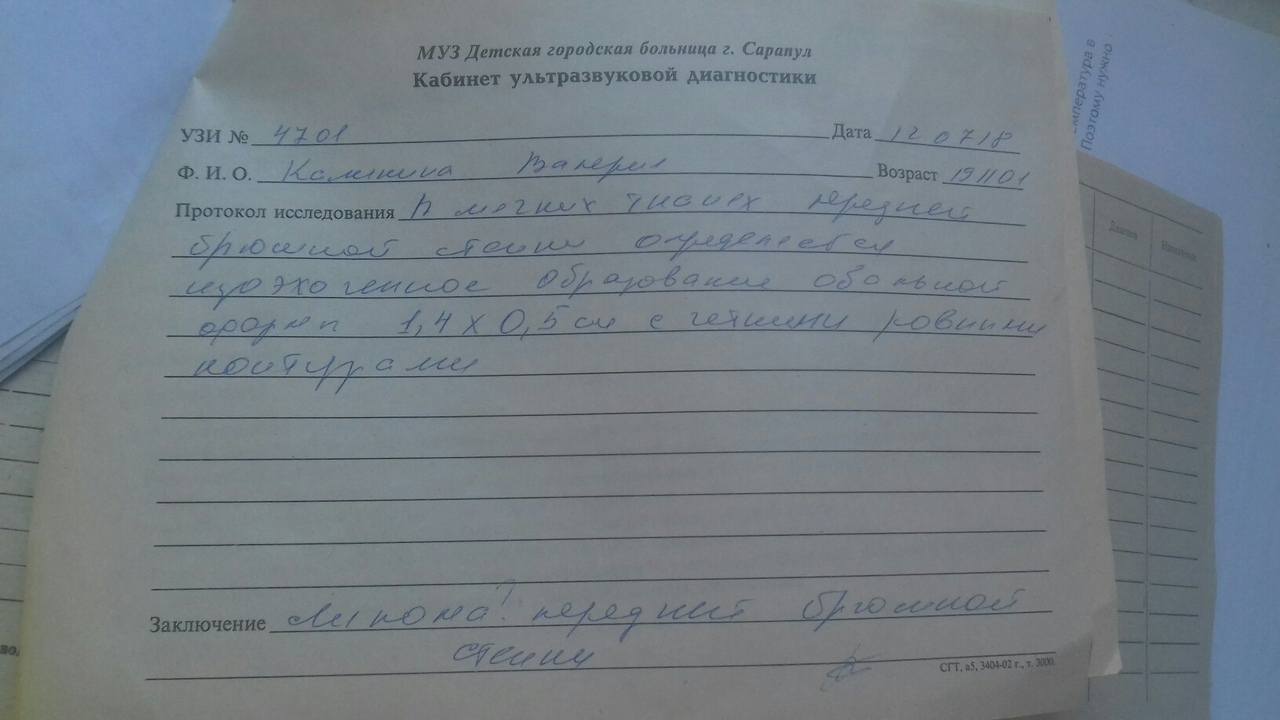 МУЗ Детская городская больница г. Сарапул
Кабинет ультразвуковой диагностики
УЗИ № 4701 Дата 12 07 18
Ф. И. О. Калинина Валерия Возраст 19 11 01
Протокол исследования В мягких тканях передней
брюшной стенки определяется
изоэхогенное образование овальной
формы 1,4 х 0,5 см с четкими ровными
контурами
Заключение Липома? передней брюшной
стенки
СГТ, а5, 3404-02 г., т. 3000.
мпература в
Поэтому нужно
во.